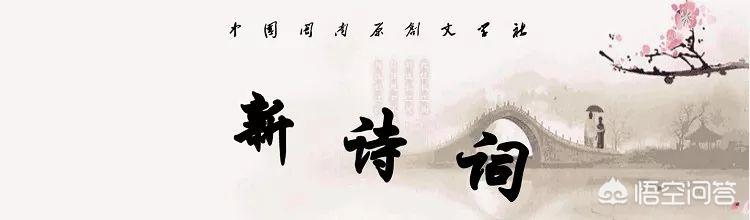 中国闽南原创文学社
新诗词
悟空问答